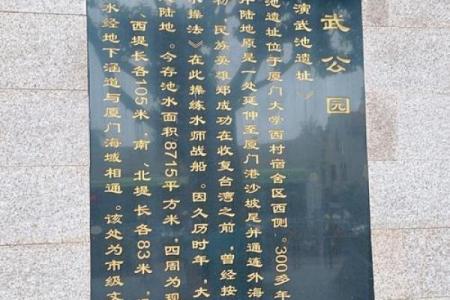 武公园
演武池遗址》
池遗址位于厦门大学西村宿舍区西侧。300多年
陆地原是一处延伸至厦门港沙坡尾并通连外海
初，民族英雄郑成功在收复台湾之前，曾经按
操法》在此操练水师战船。因久历时年，大
陆地。今存池水面积8715平方米，四周为现
、西堤长各105米，南、北堤长各83米，
水经地下涵道与厦门海域相通。该处为市级文